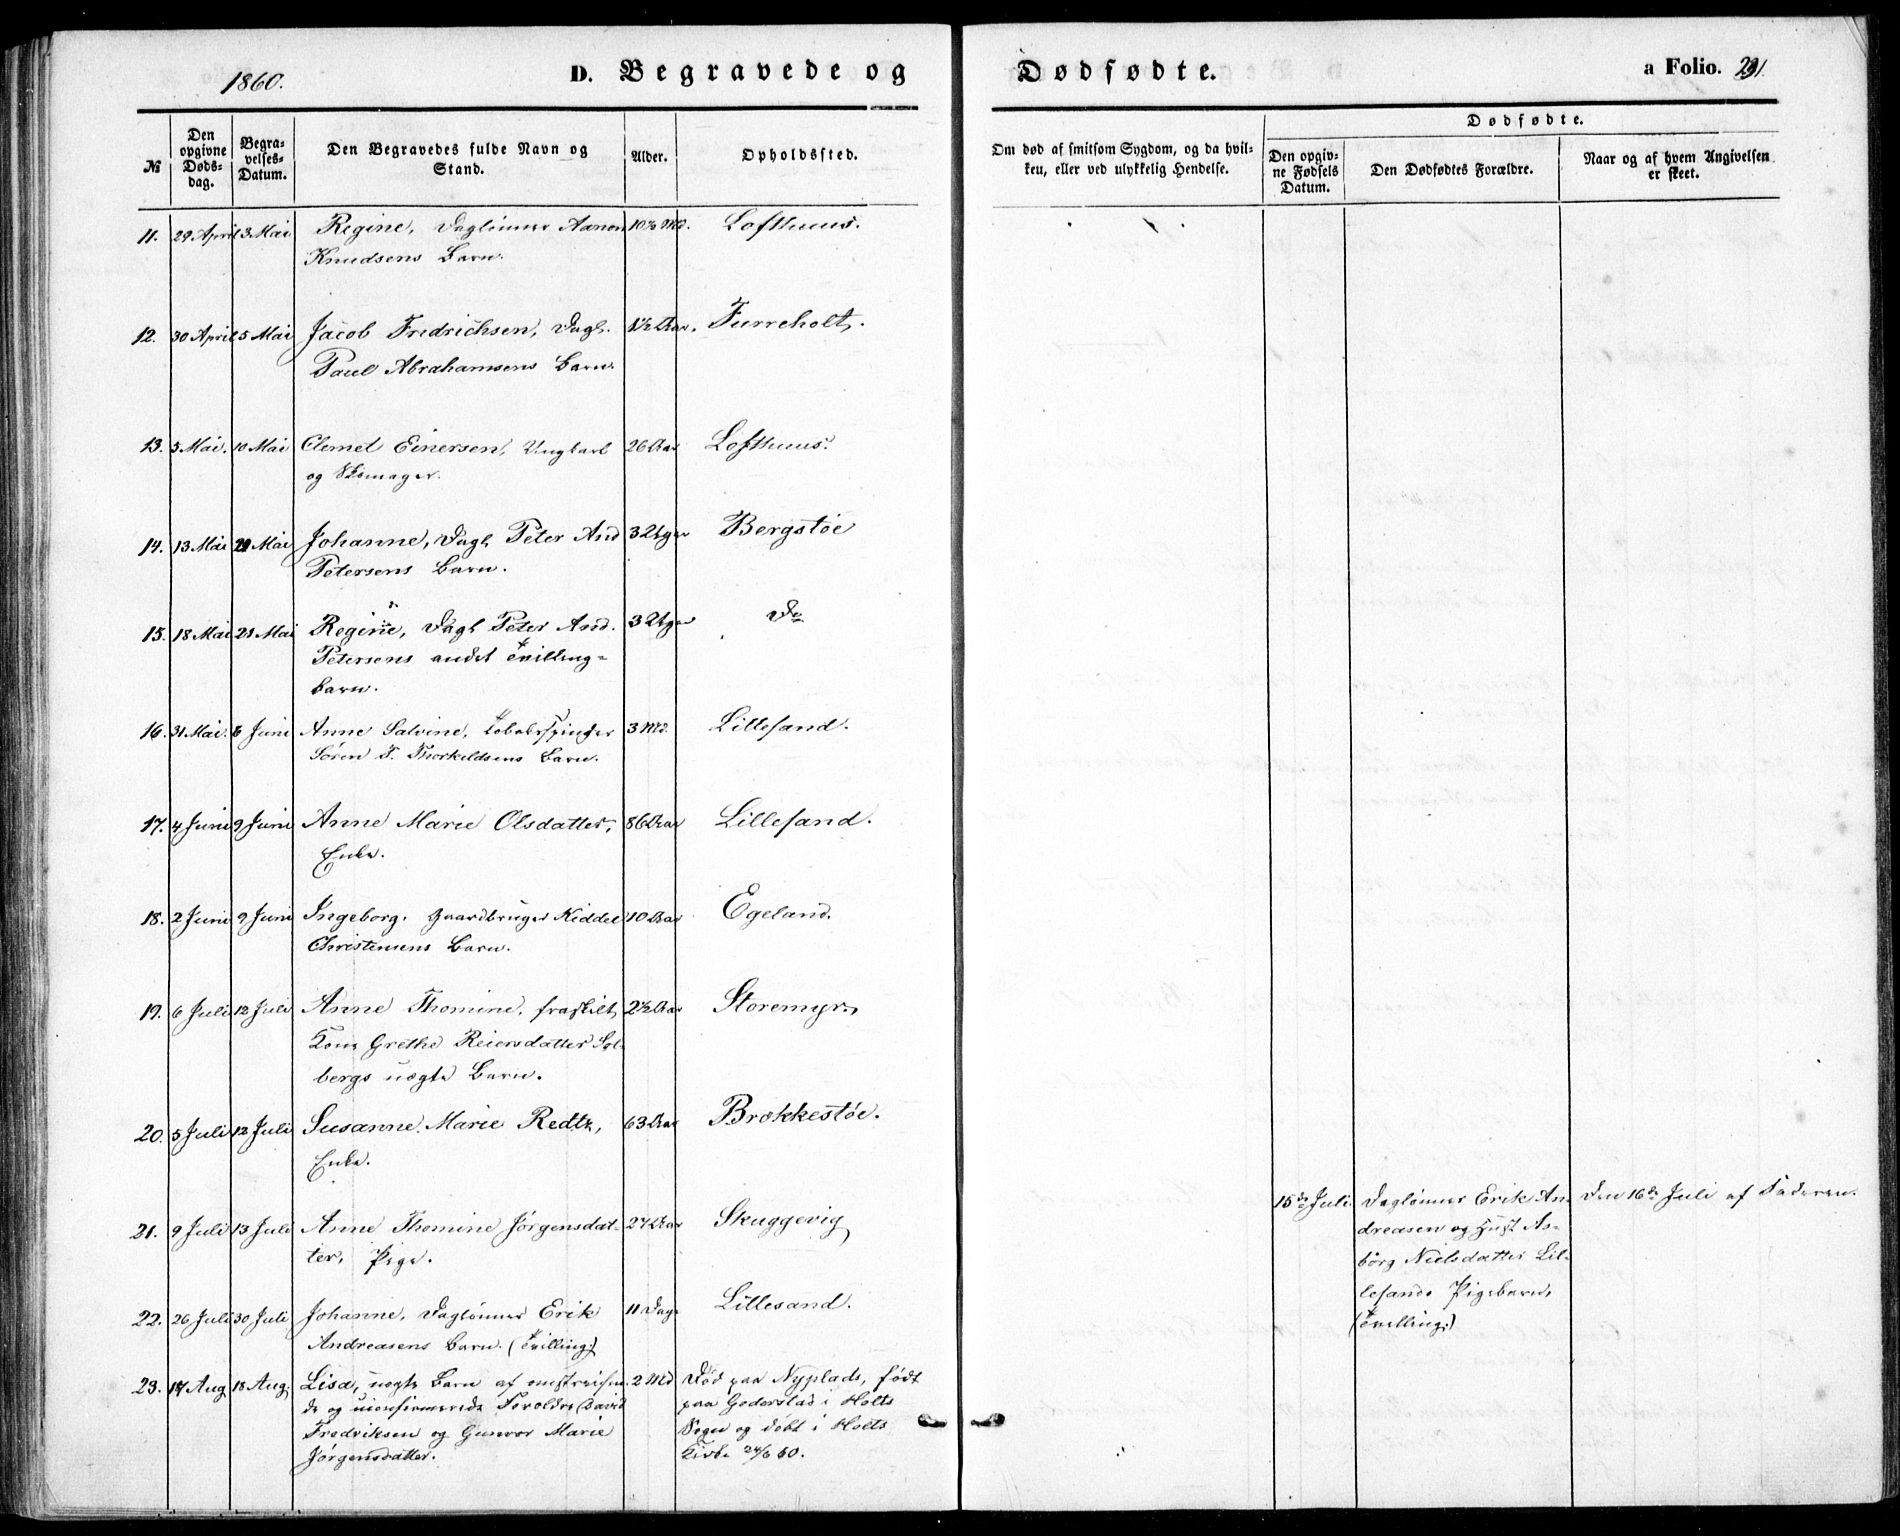 1860.
D. Begravede og
Dødfødte.
a Folio. 231.
№
Den opgivne Døds-dag.
Begra-velses-Datum.
Den Begravedes fulde Navn og Stand.
Alder.
Opholdssted.
Om død af smitsom Sygdom, og da hvil-
ken, eller ved ulykkelig Hendelse.
Dødfødte.
Den opgiv-ne Fødsels Datum.
Den Dødfødtes Forældre.
Naar og af hvem Angivelsen er skeet.
11. 29 April 3 Mai Regine, Daglønner Aanon 10½ Md. Lofthuus.
Knudsens Barn.
12. 30 April 5 Mai Jacob Fredrichsen, Dagl. 1½ Aar. Furreholt.
Paul Abrahamsens Barn.
13. 5 Mai. 10 Mai Clemet Einersen, Ungkarl 26 Aar Lofthuus.
og Skomager.
14. 13 Mai 21 Mai Johanne, Dagl. Peter And 3 Uger Bergstøe
Petersens Barn.
15. 18 Mai 21 Mai Regine, Dagl Peter And. 3 Uger Do
Petersens andet Tvilling-
barn.
16. 31 Mai. 6 Juni Anne Salvine, Tobakspinder 3 Md. Lillesand.
Søren T. Thorkildsens Barn.
17. 4 Juni 9 Juni Anne Marie Olsdatter, 86 Aar Lillesand.
Enke.
18. 2 Juni 9 Juni Ingeborg, Gaardbruger Kiddel 10 Aar Egeland.
Christensens Barn.
19. 6 Juli 12 Juli Anne Thomine, fraskilt 2½ Aar Storemyr
Kone Grethe Reiersdatter Sol-
bergs uægte Barn.
20. 5 Juli 12 Juli Susanne Marie Redtz, 63 Aar Brækkestøe.
Enke.
21. 9 Juli 13 Juli Anne Thomine Jørgensdat- 27 Aar Skuggevig
ter, Pige.
15de Juli. Daglønner Erik An- Den 16de Juli af Faderen.
dreasen og Hust As-
børg Nielsdatter Lil-
lesands Pigebarn,
(Tvilling.)
22. 26 Juli 30 Juli Johanne, Daglønner Erik 11 Dage Lillesand.
Andreasens Barn. (Tvilling.)
23. 14 Aug 18 Aug. Lisa, uægte Barn af omstreifen- 2 Md Død paa Nyplads, født
de og uconfirmerede Forældre David paa Goderstad i Holts
Fredriksen og Gunvor Marie Sogn og døbt i Holts
Jørgensdatter. Kirke 24/6 60.